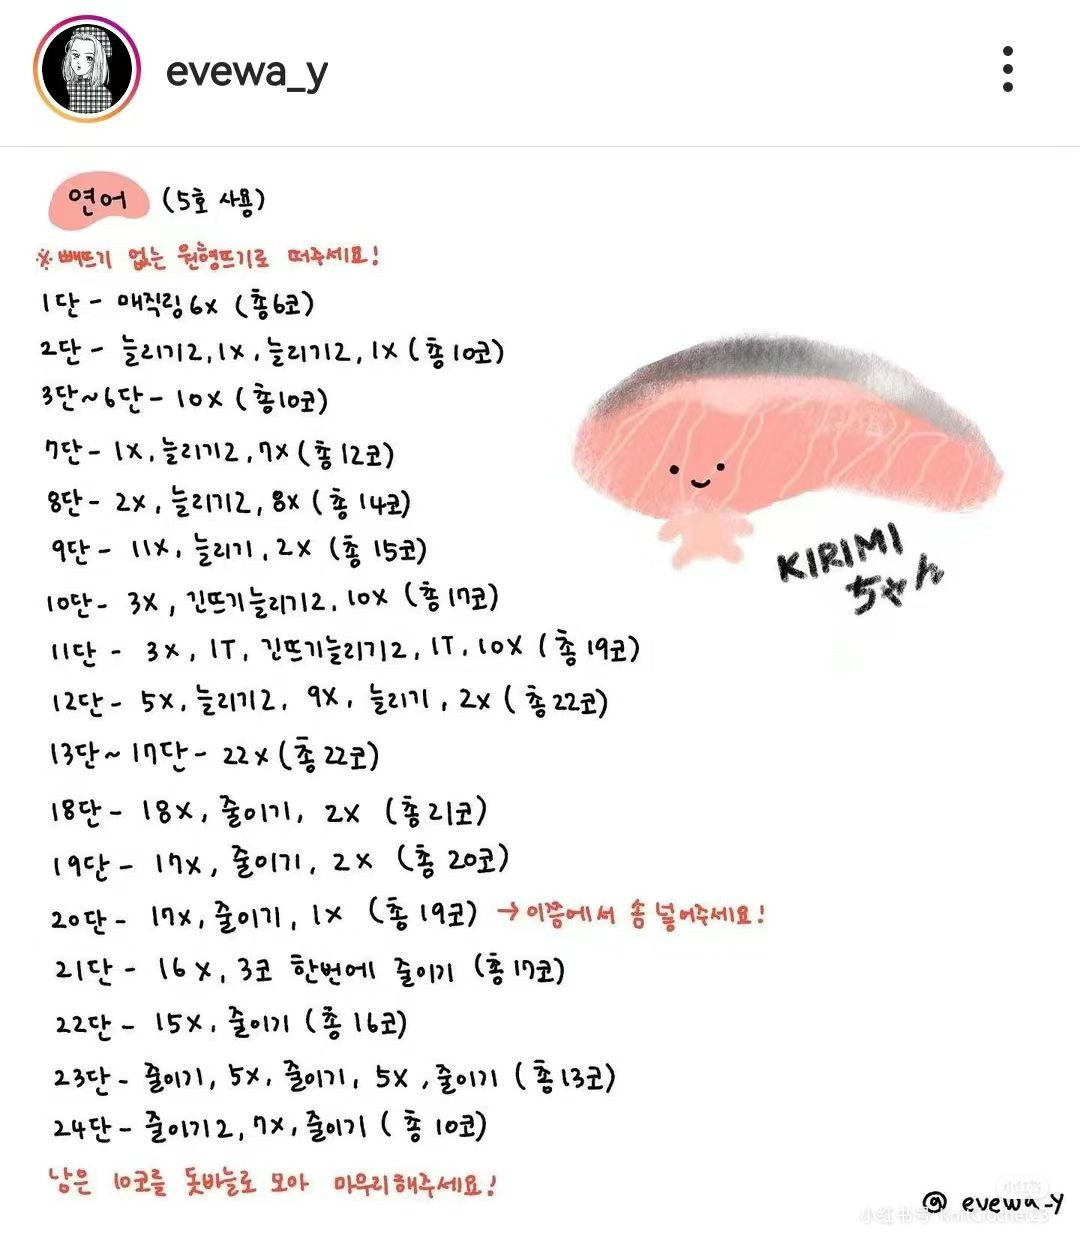 evewa_y
연어 (5호 사용)
※ 빼뜨기 없는 원형뜨기로 떠주세요!
1단 - 매직링 6X (총6코)
2단 - 늘리기2, 1X, 늘리기2, 1X (총10코)
3단~6단 - 10X (총10코)
7단 - 1X, 늘리기2, 7X (총12코)
8단 - 2X, 늘리기2, 8X (총14코)
9단 - 11X, 늘리기, 2X (총15코)
10단 - 3X, 긴뜨기늘리기2, 10X (총17코)
11단 - 3X, 1T, 긴뜨기늘리기2, 1T, 10X (총19코)
12단 - 5X, 늘리기2, 9X, 늘리기, 2X (총22코)
13단~17단 - 22X (총22코)
18단 - 18X, 줄이기, 2X (총21코)
19단 - 17X, 줄이기, 2X (총20코)
20단 - 17X, 줄이기, 1X (총19코) → 이쯤에서 솜 넣어주세요!
21단 - 16X, 3코 한번에 줄이기 (총17코)
22단 - 15X, 줄이기 (총16코)
23단 - 줄이기, 5X, 줄이기, 5X, 줄이기 (총13코)
24단 - 줄이기2, 7X, 줄이기 (총10코)
남은 10코를 돗바늘로 모아 마무리해주세요!
KIRIMI
ちゃん
@evewa_y
小红书
小红书号